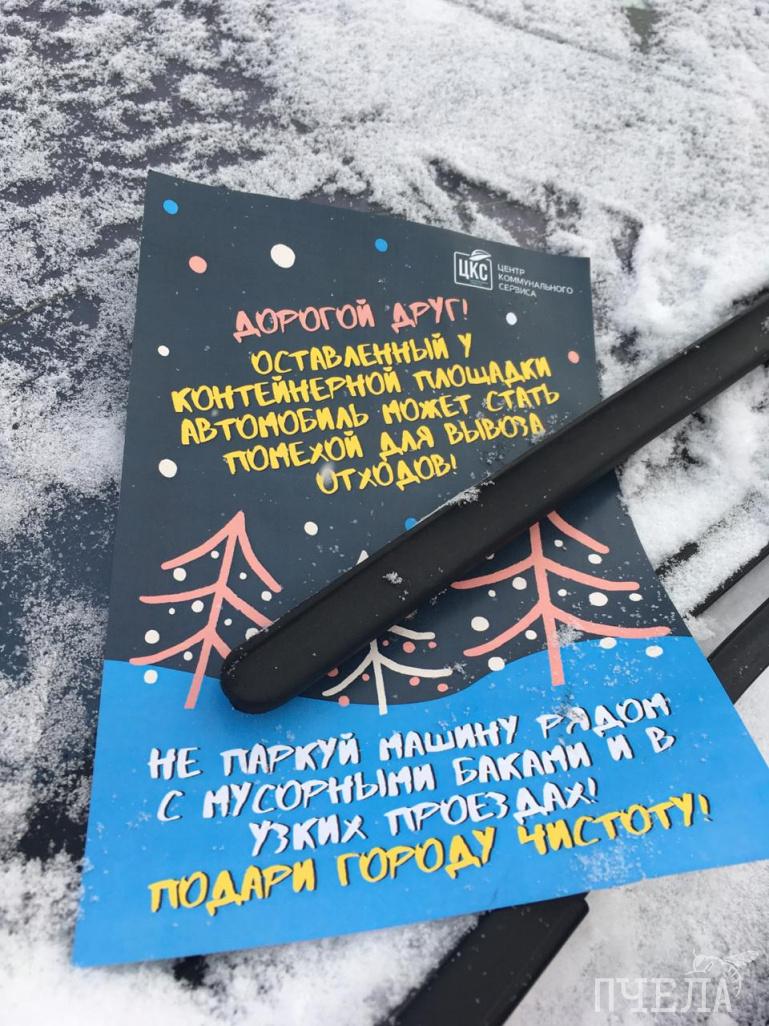 ЦКС
ЦЕНТР
КОММУНАЛЬНОГО
СЕРВИСА
ДОРОГОЙ ДРУГ!
ОСТАВЛЕННЫЙ У
КОНТЕЙНЕРНОЙ ПЛОЩАДКИ
АВТОМОБИЛЬ МОЖЕТ СТАТЬ
ПОМЕХОЙ ДЛЯ ВЫВОЗА
ОТХОДОВ!
НЕ ПАРКУЙ МАШИНУ РЯДОМ
С МУСОРНЫМИ БАКАМИ И В
УЗКИХ ПРОЕЗДАХ!
ПОДАРИ ГОРОДУ ЧИСТОТУ!
ПЧЕЛА